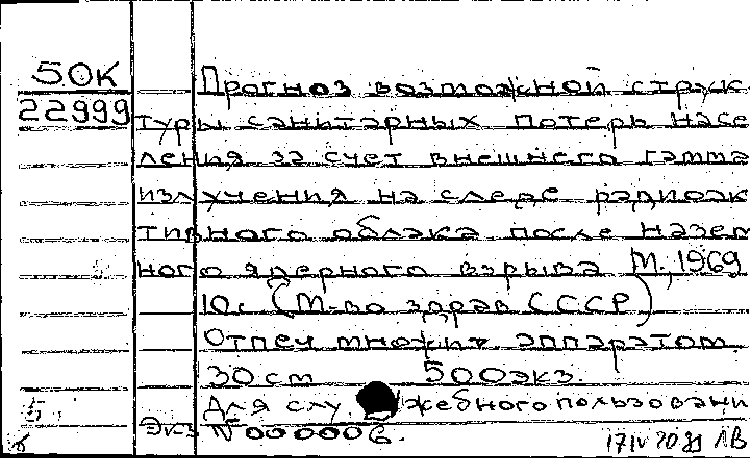 5.0К
22999
Прогноз возможной струк
туры санитарных потерь насе
ления за счет внешнего гамма
излучения на следе радиоак
тивного облака после назем
ного ядерного взрыва М., 1969
10с (М-во здрав СССР)
Отпеч множит аппаратом.
30 см 500 экз.
Для служебного пользовани
Экз № 000006.
ЛВ